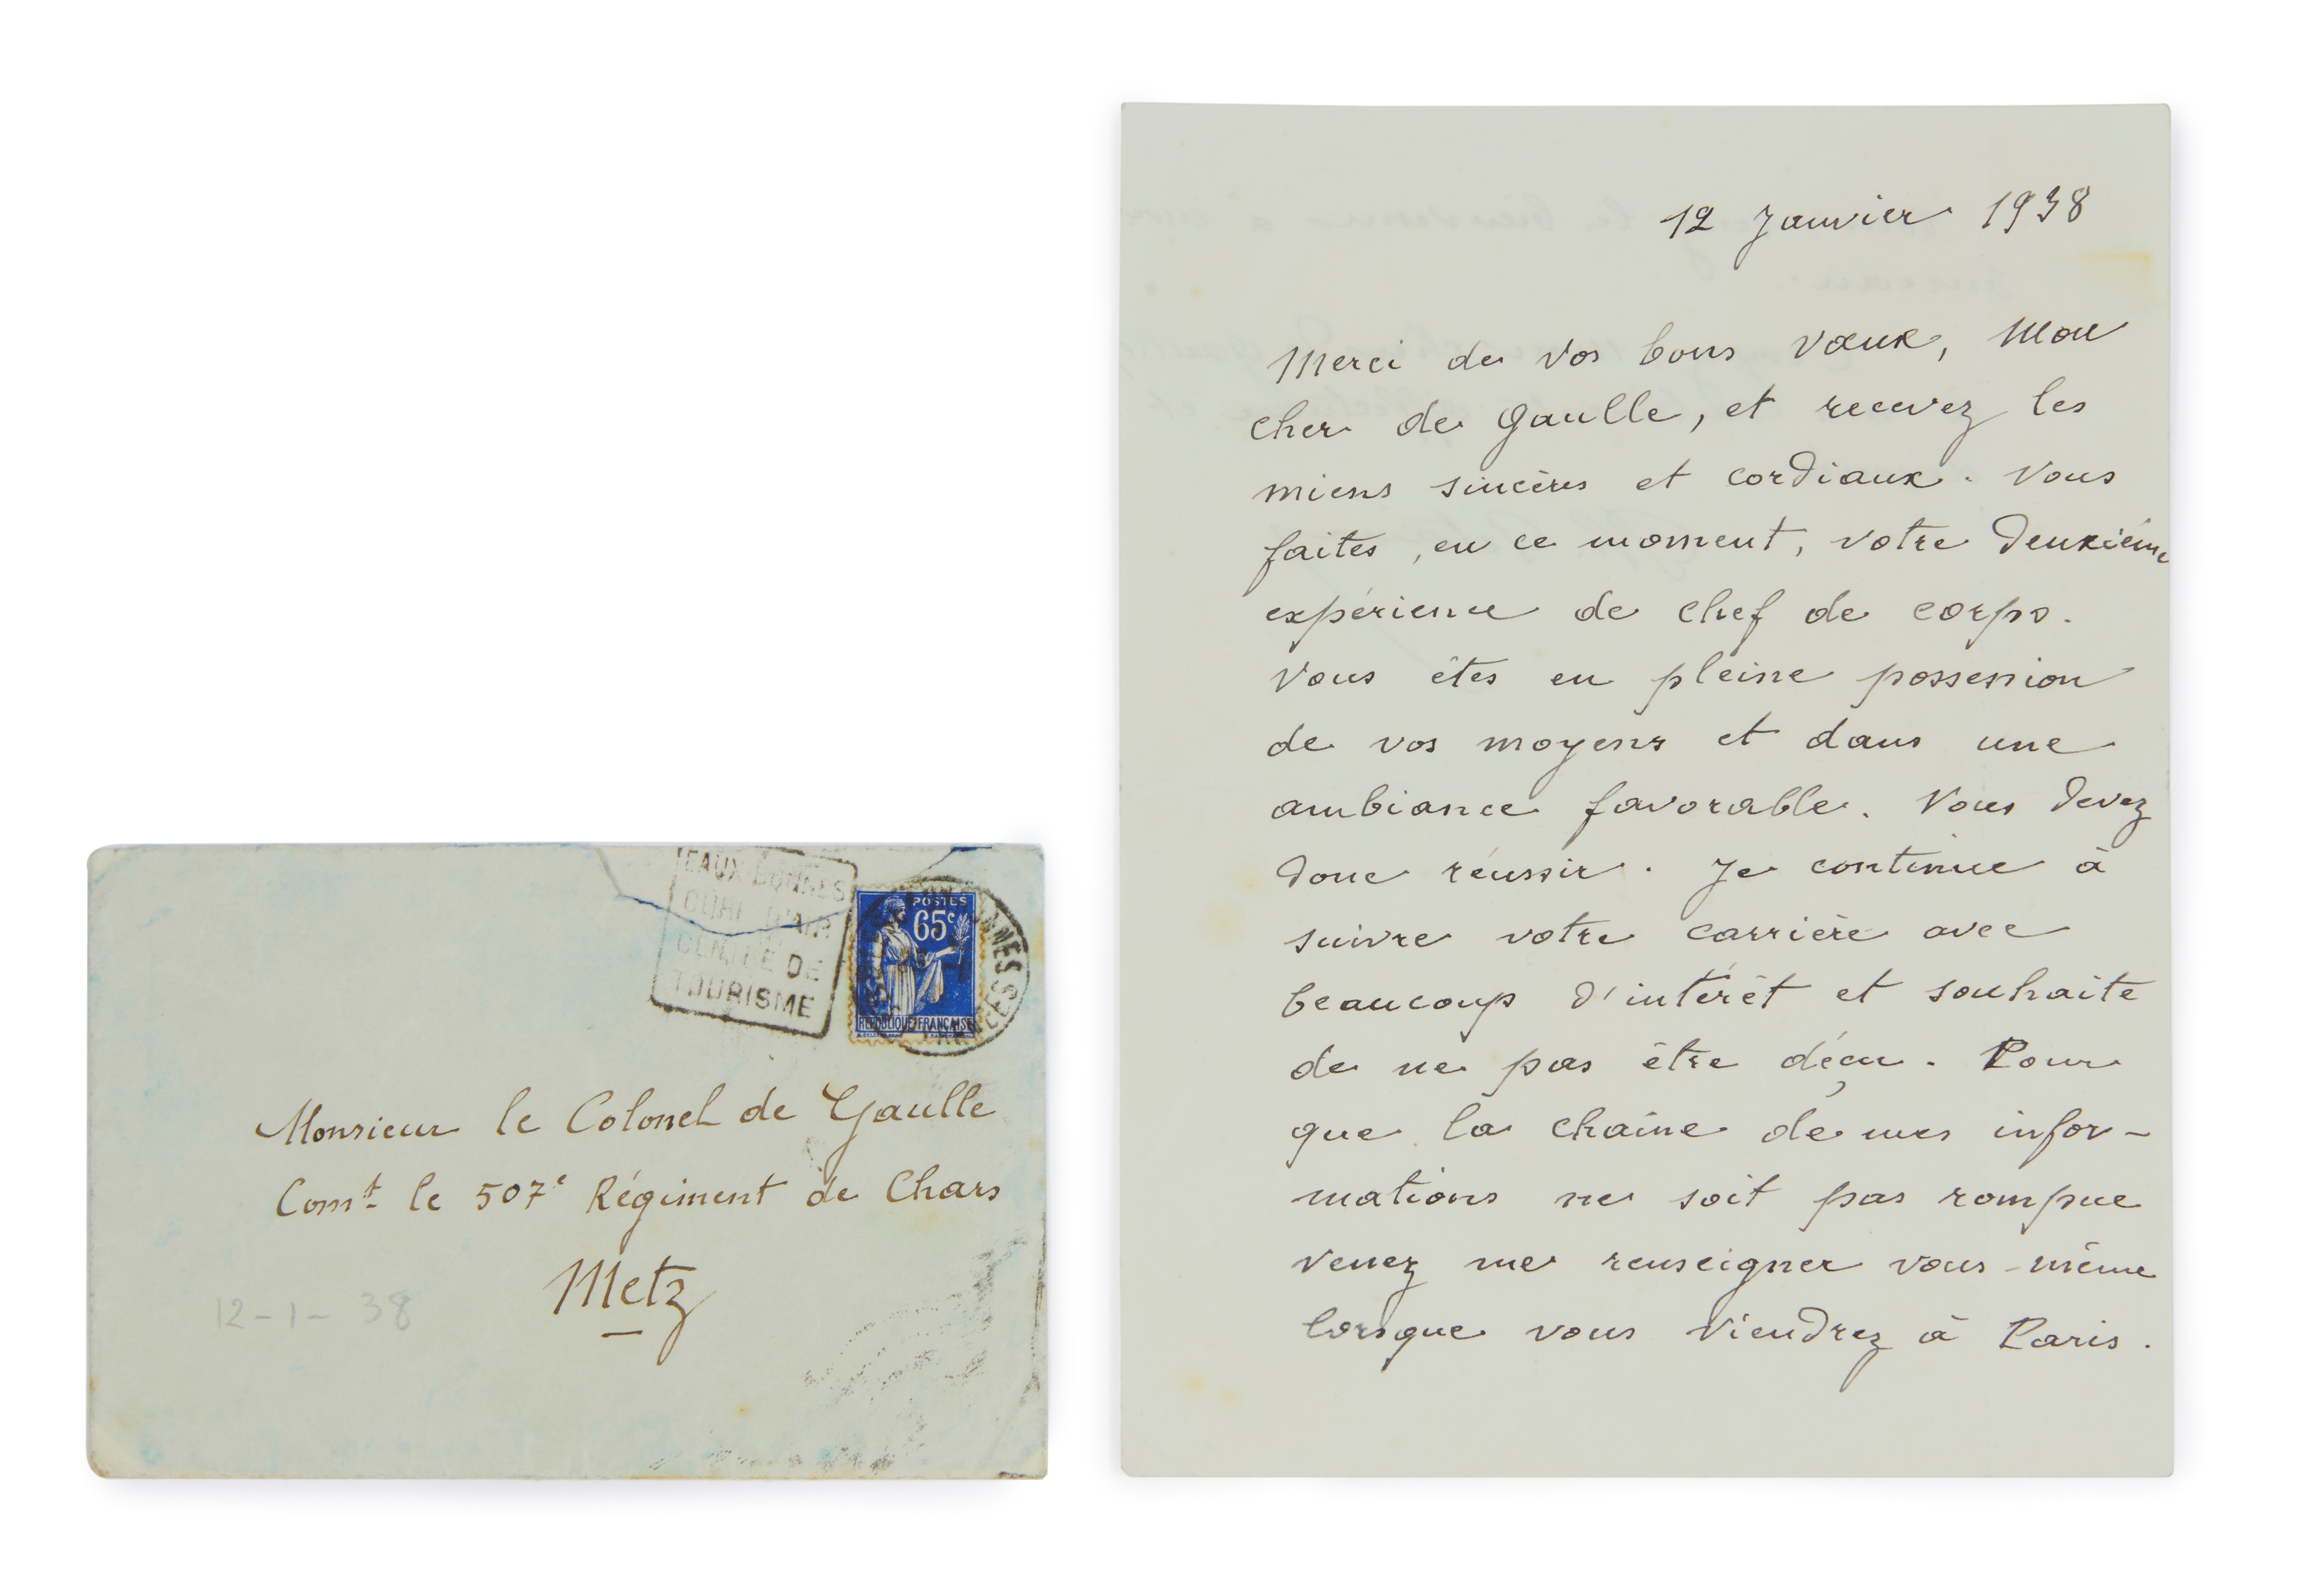 EAUX-BONNES
CURE D'AIR
CENTRE DE
TOURISME
POSTES
65c
REPUBLIQUE FRANÇAISE
Monsieur le Colonel de Gaulle
Comt le 507e Régiment de Chars
Metz
12-1-38
12 Janvier 1938
Merci de vos bons vœux, mon
cher de Gaulle, et recevez les
miens sincères et cordiaux. Vous
faites, en ce moment, votre deuxième
expérience de chef de corps.
Vous êtes en pleine possession
de vos moyens et dans une
ambiance favorable. Vous devez
donc réussir. Je continue à
suivre votre carrière avec
beaucoup d'intérêt et souhaite
de ne pas être déçu. Pour
que la chaine de mes infor-
mations ne soit pas rompue
venez me renseigner vous-même
lorsque vous viendrez à Paris.